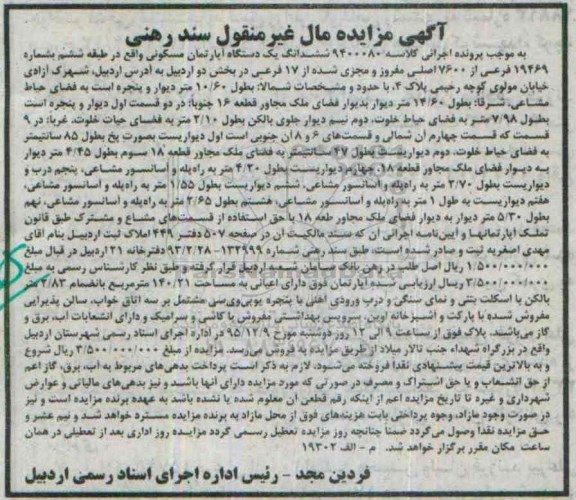 آگهی مزایده مال غیر منقول سند رهنی
به موجب پرونده اجرائی کلاسه ۹۴۰۰۰۸۰ ششدانگ یک دستگاه آپارتمان مسکونی واقع در طبقه ششم بشماره
۱۹۴۶۹ فرعی از ۷۶۰۰ اصلی مفروز و مجزی شده از ۱۷ فرعی در بخش دو اردبیل به آدرس اردبیل، شهرک آزادی
خیابان مولوی کوچه رحیمی پلاک ۴، با حدود و مشخصات شمالا: بطول ۱۰/۶۰ متر دیوار و پنجره است به فضای حیاط
مشاعی، شرقا: بطول ۱۴/۶۰ متر دیوار بدیوار فضای ملک مجاور قطعه ۱۶ جنوبا: در دو قسمت اول دیوار و پنجره است
بطول ۷/۹۸ متر به فضای حیاط خلوت، دوم نیم دیوار جلوی بالکن بطول ۲/۱۰ متر به فضای حیات خلوت، غربا: در ۹
قسمت که قسمت چهارم آن شمالی و قسمت های ۶ و ۸ آن جنوبی است اول دیواریست بصورت پخ بطول ۸۵ سانتیمتر
به فضای حیاط خلوت، دوم دیواریست بطول ۴۷ سانتیمتر به فضای ملک مجاور قطعه ۱۸ سوم بطول ۴/۴۵ متر دیوار
به دیوار فضای ملک مجاور قطعه ۱۸، چهارم دیواریست بطول ۴/۲۰ متر به راه‌پله و آسانسور مشاعی، پنجم درب و
دیواریست بطول ۲/۷۰ متر به راه‌پله و آسانسور مشاعی، ششم دیواریست بطول ۱/۵۵ متر به راه‌پله و آسانسور مشاعی،
هفتم دیواریست به طول ۱ متر به راه‌پله و آسانسور مشاعی، هشتم بطول ۲/۶۵ متر به راه‌پله و آسانسور مشاعی، نهم
بطول ۵/۳۰ متر دیوار به دیوار فضای ملک مجاور طعه ۱۸ با حق استفاده از قسمت‌های مشاع و مشترک طبق قانون
تملک آپارتمانها و آیین‌نامه اجرائی آن که سند مالکیت آن در صفحه ۵۰۷ دفتر ۴۴۹ املاک ثبت اردبیل بنام آقای
مهدی اصغریه ثبت و صادر شده است، طبق سند رهنی شماره ۱۳۲۹۹۹-۹۳/۲/۲۸ دفترخانه ۲۱ اردبیل در قبال مبلغ
۱/۵۰۰/۰۰۰/۰۰۰ ریال اصل طلب در رهن بانک سامان شعبه اردبیل قرار گرفته و طبق نظر کارشناس رسمی به مبلغ
۳/۵۰۰/۰۰۰/۰۰۰ ریال ارزیابی شده آپارتمان فوق دارای اعیانی به مساحت ۱۴۰/۲۱ مترمربع بانضمام ۲/۸۳ متر
بالکن با اسکلت بتنی و نمای سنگی و درب ورودی آهنی با پنجره یوپی‌وی‌سی مشتمل بر سه اتاق خواب، سالن پذیرایی
مفروش شده با پارکت و آشپزخانه اوپن، سرویس بهداشتی مفروش با کاشی و سرامیک و دارای انشعابات آب، برق و
گاز می‌باشند. پلاک فوق از ساعت ۹ الی ۱۲ روز دوشنبه مورخ ۹۵/۱۲/۹ در اداره اجرای اسناد رسمی شهرستان اردبیل
واقع در بزرگراه شهداء جنب تالار میلاد از طریق مزایده به فروش می‌رسد. مزایده از مبلغ ۳/۵۰۰/۰۰۰/۰۰۰ ریال شروع
و به بالاترین قیمت پیشنهادی نقدا فروخته می‌شود، لازم به ذکر است پرداخت بدهی‌های مربوط به آب، برق، گاز اعم
از حق انشعاب و یا حق اشتراک و مصرف در صورتی که مورد مزایده دارای آنها باشد و نیز بدهی‌های مالیاتی و عوارض
شهرداری و غیره تا تاریخ مزایده اعم از اینکه رقم قطعی آن معلوم شده یا نشده باشد به عهده برنده مزایده است و نیز
در صورت وجود مازاد، وجوه پرداختی بابت هزینه‌های فوق از محل مازاد به برنده مزایده مسترد خواهد شد و نیم عشر و
حق مزایده نقدا وصول می‌گردد ضمنا چنانچه روز مزایده تعطیل رسمی گردد مزایده روز اداری بعد از تعطیلی در همان
ساعت مکان مقرر برگزار خواهد شد. م - الف ۱۹۳۰۲
فردین مجد - رئیس اداره اجرای اسناد رسمی اردبیل